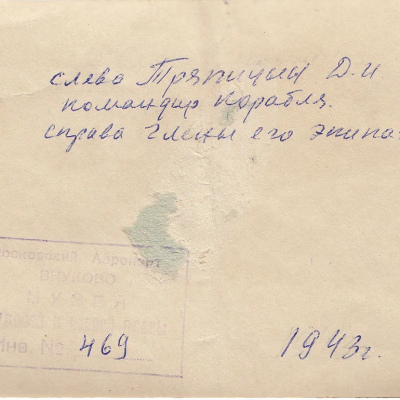 слева Тряпицын Д.И
командир корабля.
справа члены его экипа
Московский Аэропорт
ВНУКОВО
Инв. №
469
1943г.